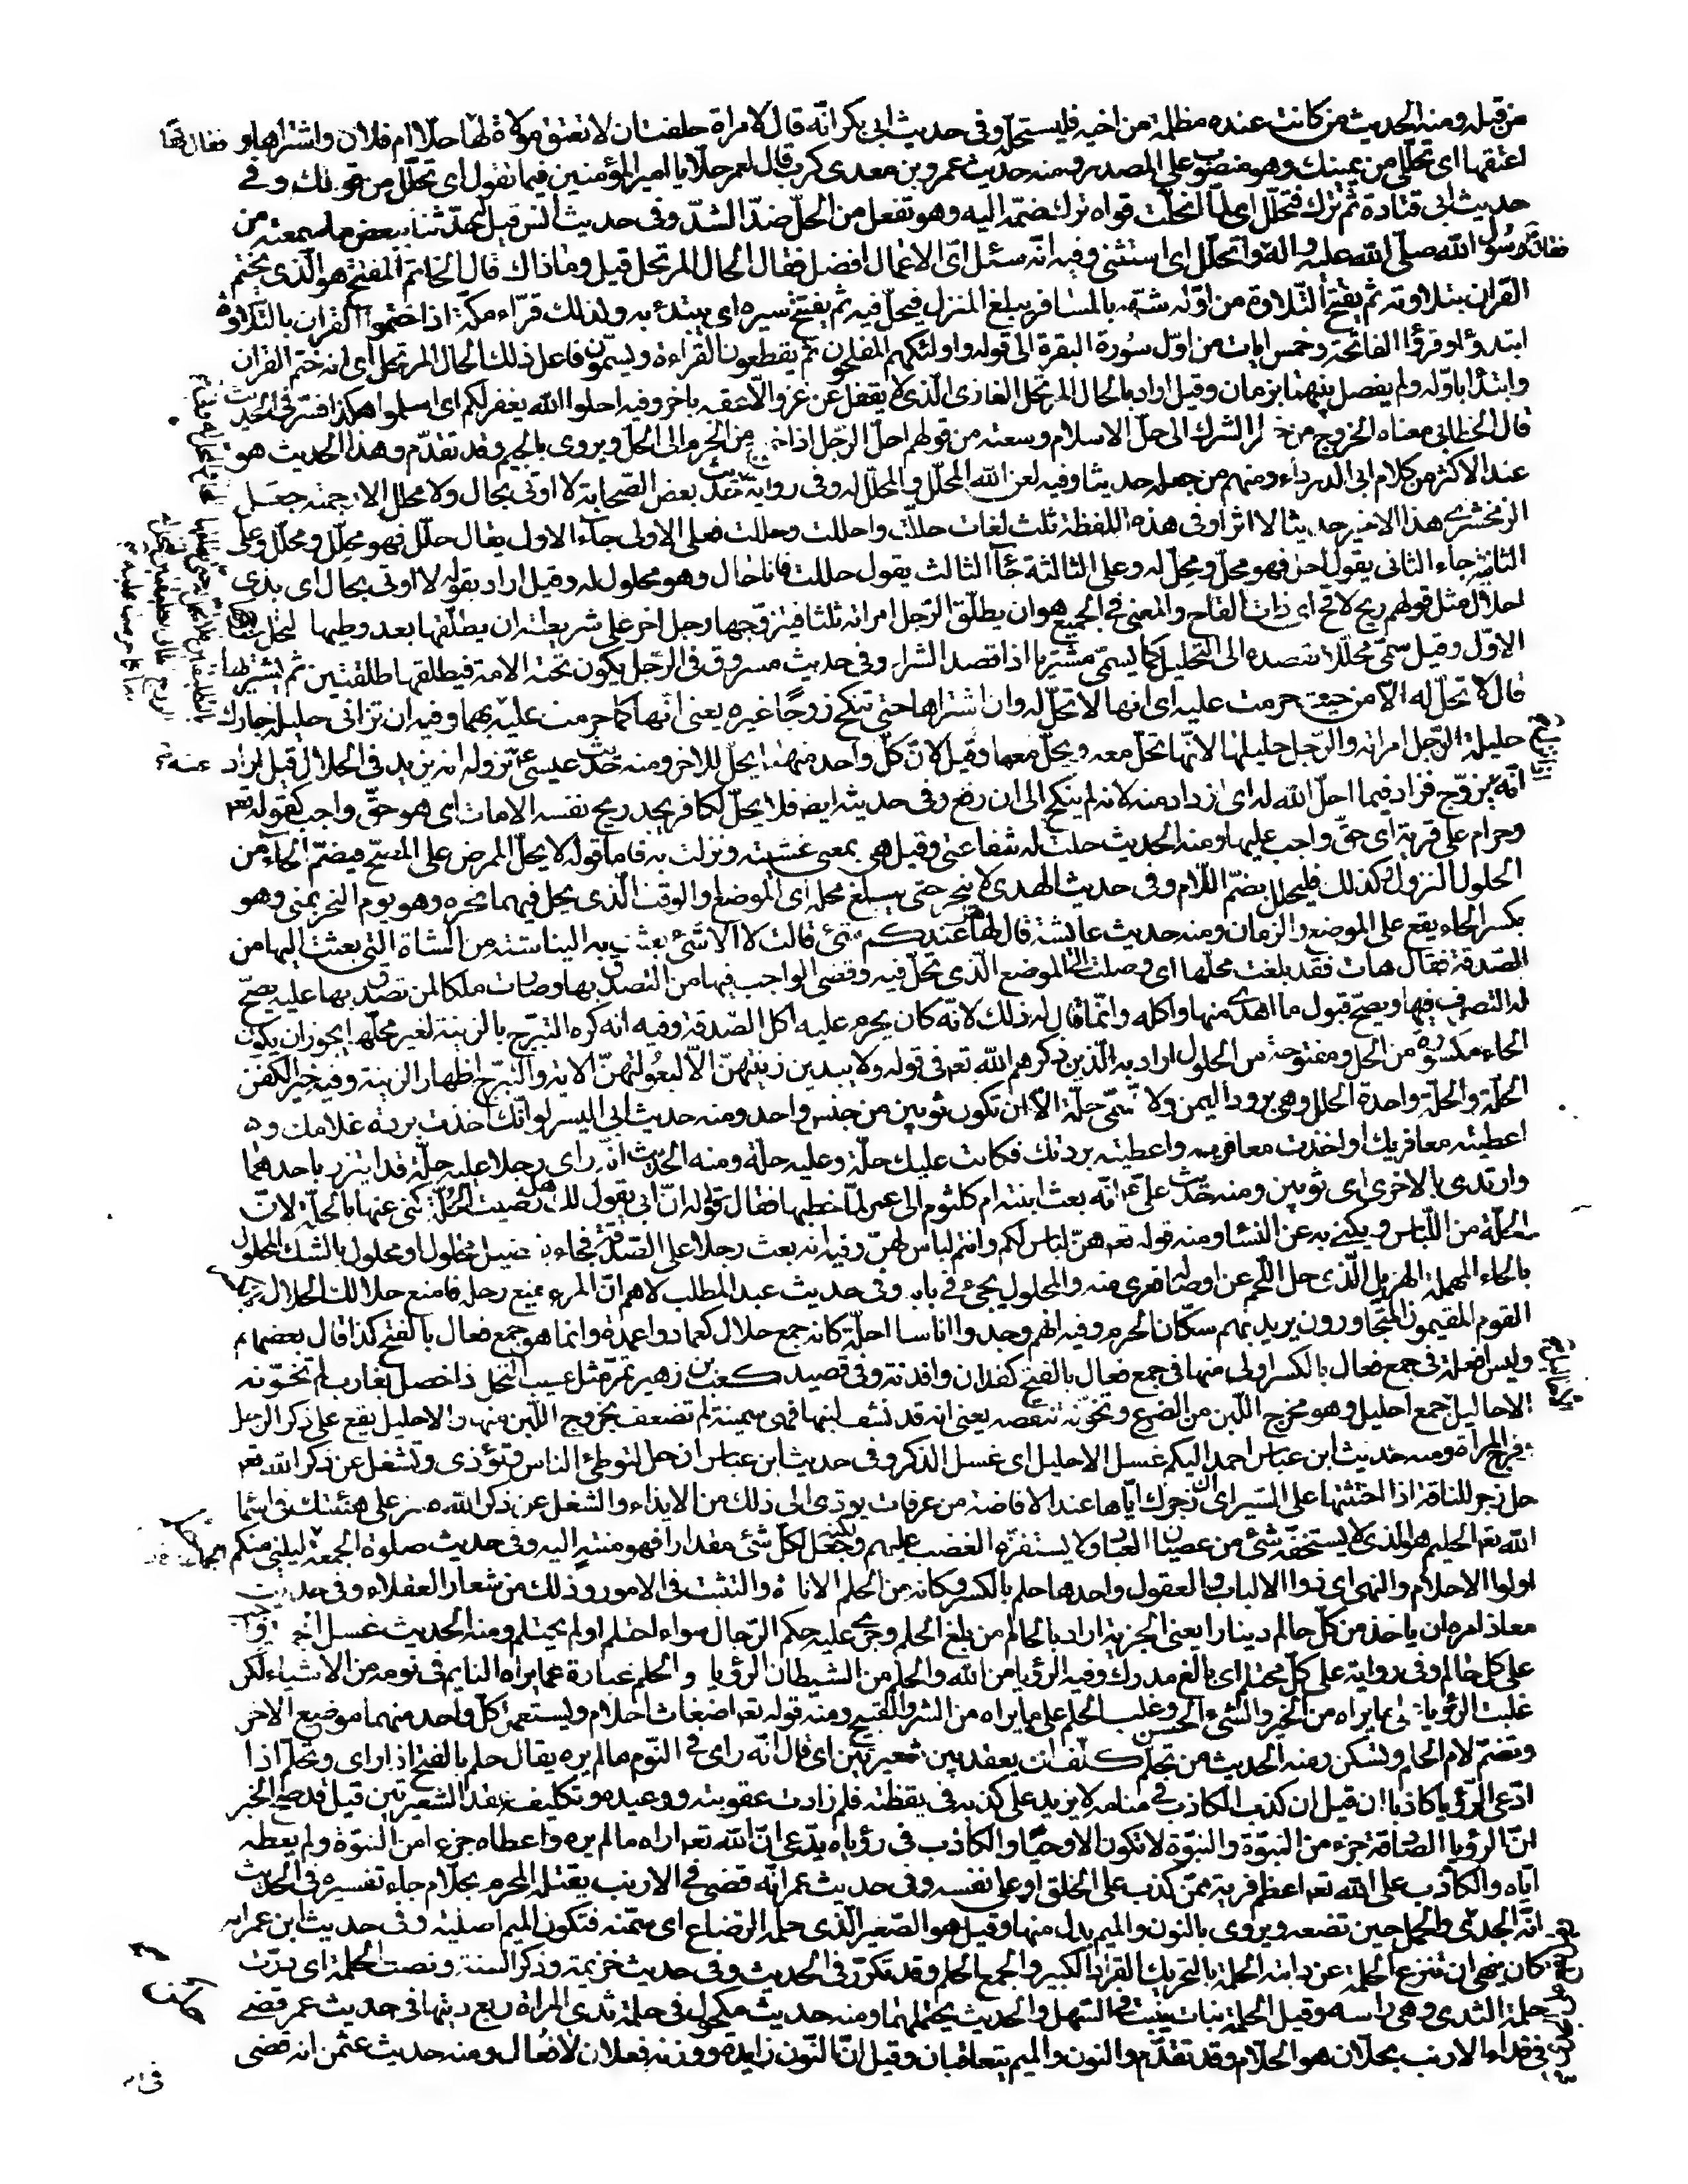 من قبله ومنه الحديث من كانت عنده مظلمة من اخيه فليستحله وفى حديث ابى بكر انه قال لامراة حلفت ان لا تعتق مولاة لها حلا ام فلان واشتراها و
اعتقها اى تحللى من يمينك وهو منصوب على المصدر ومنه حديث عمرو بن معدى كرب قال لعمر حلا يا امير المؤمنين فيما تقول اى تحلل من قولك وفى
حديث ابى قتادة ثم ترك فتحلل اى لما انحلت قواه ترك ضمه اليه وهو تفعل من الحل ضد الشد وفى حديث انس قيل له حدثنا ببعض ما سمعته من
رسول الله صلى الله عليه واله واتحلل اى استثنى وفيه انه سئل اى الاعمال افضل فقال الحال المرتحل قيل وما ذاك قال الخاتم المفتتح هو الذى يختم
القران بتلاوته ثم يفتتح التلاوة من اوله شبهه بالمسافر يبلغ المنزل فيحل فيه ثم يفتتح سيره اى يبتدئ به ولذلك قراء مكة اذا ختموا القران بالتلاوة
ابتدؤا وقرؤا الفاتحة وخمس ايات من اول سورة البقرة الى قوله واولئك هم المفلحون ثم يقطعون القراءة ويسمون فاعل ذلك الحال المرتحل اى انه ختم القران
وابتدا باوله ولم يفصل بينهما بزمان وقيل اراد بالحال المرتحل الغازى الذى لا يقفل عن غزو الا عقبه باخر وفيه احلوا الله يغفر لكم اى اسلموا هكذا فسر فى الحديث
قال الخطابى معناه الخروج من الشرك الى حل الاسلام وسعته من قولهم احل الرجل اذا خرج من الحرم الى الحل ويروى بالجيم وقد تقدم وهذا الحديث هو
عند الاكثر من كلام ابى الدرداء ومنهم من جعله حديثا وفيه لعن الله المحلل والمحلل له وفى رواية حديث بعض الصحابة لا اوتى بحال ولا محلل الا رجمته جعل
الزمخشرى هذا الاخير حديثا لا اثرا وفى هذه اللفظة ثلث لغات حللت واحللت وحللت فعلى الاولى جاء الاول يقال حلل فهو محلل ومحلل له وعلى
الثانية جاء الثانى يقول احل فهو محل ومحل له وعلى الثالثة جاء الثالث يقول حللت فانا حال وهو محلول له وقيل اراد بقوله لا اوتى بحال اى بذى
احلال مثل قولهم ريح لاقح اى ذات القاح والمعنى فى الجميع هو ان يطلق الرجل امراته ثلثا فيتزوجها رجل اخر على شريطة ان يطلقها بعد وطيها لتحل
الاول وقيل سمى محللا بقصده الى التحليل كما يسمى مشتريا اذا قصد الشراء وفى حديث مسروق فى الرجل يكون تحته الامة فيطلقها طلقتين ثم يشتريها
قال لا تحل له الا من حيث حرمت عليه اى انها لا تحل له وان اشتراها حتى تنكح زوجا غيره يعنى انها كما حرمت عليه بهما وفيه ان تزانى حليلة جارك
حليلة الرجل امراته والرجل حليلها لانها تحل معه ويحل معها وقيل لان كل واحد منهما يحل للاخر ومنه حديث عيسى ع عند نزوله انه يزيد فى الحلال قيل اراد
انه يتزوج فزاد فيما احل الله له اى ازداد منه لانه لم ينكح الى ان رفع وفى حديثه ايضا فلا يحل لكافر يجد ريح نفسه الا مات اى هو حق واجب كقوله تعم
وحرام على قرية اى حق واجب عليها ومنه الحديث حلت له شفاعتى وقيل هى بمعنى غشيته ونزلت به فاما قوله لا يحل الممرض على المصح فبضم الحاء من
الحلول النزول وكذلك فليحلل بضم اللام وفى حديث الهدى لا ينحر حتى يبلغ محله اى الموضع او الوقت الذى يحل فيهما نحره وهو يوم النحر بمنى وهو
بكسر الحاء يقع على الموضع والزمان ومنه حديث عايشة قال لها هل عندكم شئ قالت لا الا شئ بعثت به الينا نسيبة من الشاة التى بعثت اليها من
الصدقة فقال هات فقد بلغت محلها اى وصلت الى الموضع الذى تحل فيه وقضى الواجب فيها من التصدق بها وصارت ملكا لمن تصدق بها عليه يصح
له التصرف فيها ويصح قبول ما اهدى منها واكله وانما قال له ذلك لانه كان يحرم عليه اكل الصدقة وفيه انه كره التبرج بالزينة لغير محلها يجوز ان يكون
الحاء مكسورة من الحل ومفتوحة من الحلول اراد به الذين ذكرهم الله تعم فى قوله ولا يبدين زينتهن الا لبعولتهن الاية والتبرج اظهار الزينة وفيه خير الكفن
الحلة والحلة واحدة الحلل وهى برود اليمن ولا تسمى حلة الا ان تكون ثوبين من جنس واحد ومنه حديث ابى اليسر لو انك اخذت بردة غلامك و
اعطيته معافريك او اخذت معافريه واعطيته بردتك فكانت عليك حلة وعليه حلة ومنه الحديث انه راى رجلا عليه حلة قد ايتزر باحدهما
وارتدى بالاخرى اى ثوبين ومنه حديث على ع انه بعث ابنته ام كلثوم الى عمر لما خطبها فقال قولى له ان ابى يقول لك هل رضيت الحلة كنى عنها بالحلة لان
الحلة من اللباس ويكنى به عن النساء ومنه قوله تعم هن لباس لكم وانتم لباس لهن وفيه انه بعث رجلا على الصدقة فجاء بفصيل مخلول او محلول بالشك المحلول
بالحاء المهملة الهزيل الذى حل اللحم عن اوصاله فعرى منه والمخلول يجئ فى بابه وفى حديث عبد المطلب لاهم ان المرء يمنع رحله فامنع حلالك الحلال
القوم المقيمون المتجاورون يريد بهم سكان الحرم وفيه انهم وجدوا اناسا احلة كانه جمع حلال كعماد واعمدة وانما هو جمع فعال بالفتح كذا قال بعضهم
وليس افعلة فى جمع فعال بالكسر اولى منها فى جمع فعال بالفتح كفدان وافدنة وفى قصيد كعب بن زهير تمر مثل عسيب النخل ذا خصل بغارب لم تخونه
الاحاليل جمع احليل وهو مخرج اللبن من الضرع وتخونه تنقصه يعنى انه قد نشف لبنها فهى سمينة لم تضعف بخروج اللبن منها والاحليل يقع على ذكر الرجل
وفرج المراة ومنه حديث ابن عباس احمد اليكم غسل الاحليل اى غسل الذكر وفى حديث ابن عباس ان حل لتوطئ الناس وتؤذى وتشغل عن ذكر الله تعم
حل زجر للناقة اذا حثثتها على السير اى ان زجرك اياها عند الافاضة من عرفات يودى الى ذلك من الايذاء والشغل عن ذكر الله فسر على هينتك
الله تعم الحليم هو الذى لا يستخفه شئ من عصيان العباد ولا يستفزه الغضب عليهم ولكنه جعل لكل شئ مقدارا فهو منته اليه وفى حديث صلوة الجمعة ليلينى منكم
اولوا الاحلام والنهى اى ذوا الالباب والعقول واحدها حلم بالكسر وكانه من الحلم الاناة والتثبت فى الامور وذلك من شعار العقلاء وفى حديث
معاذ امره ان ياخذ من كل حالم دينارا يعنى الجزية اراد بالحالم من بلغ الحلم وجرى عليه حكم الرجال سواء احتلم او لم يحتلم ومنه الحديث غسل
على كل حالم وفى رواية على كل محتلم اى بالغ مدرك وفيه الرؤيا من الله والحلم من الشيطان الرؤيا والحلم عبارة عما يراه النايم فى نومه من الاشياء لكن
غلبت الرؤيا على ما يراه من الخير والشئ الحسن وغلب الحلم على ما يراه من الشر والقبيح ومنه قوله تعم اضغاث احلام ويستعمل كل واحد منهما موضع الاخر
وتضم لام الحلم وتسكن ومنه الحديث من تحلم كلف ان يعقد بين شعيرتين اى قال انه راى فى النوم ما لم يره يقال حلم بالفتح اذا راى وتحلم اذا
ادعى الرؤيا كاذبا ان قيل ان كذب الكاذب فى منامه لا يزيد على كذبه فى يقظته فلم زادت عقوبته ووعيده وتكليف عقد الشعيرتين قيل قد صح الخبر
ان الرؤيا الصادقة جزء من النبوة والنبوة لا تكون الا وحيا والكاذب فى رؤياه يدعى ان الله تعم اراه ما لم يره واعطاه جزءا من النبوة ولم يعطه
اياه والكاذب على الله تعم اعظم فرية ممن كذب على الخلق او على نفسه وفى حديث عمر انه قضى فى الارنب يقتله المحرم بحلام جاء تفسيره فى الحديث
انه الجدى والحمل حين تضعه ويروى بالنون والميم بدل منها وقيل هو الصغير الذى حلمه الرضاع اى سمنه فتكون الميم اصلية وفى حديث ابن عمر انه
كان ينهى ان تنزع الحلمة عن دابته الحلمة بالتحريك القراد الكبير والجمع الحلم وقد تكرر فى الحديث وفى حديث خزيمة وذكر السنة وبضت الحلمة اى درت
حلمة الثدى وهى راسه وقيل الحلمة نبات ينبت فى السهل والحديث يحتملهما ومنه حديث مكحول فى حلمة ثدى المراة ربع ديتها فى حديث عمر قضى
فى فداء الارنب بحلان هو الحلام وقد تقدم والنون والميم يتعاقبان وقيل ان النون زايدة ووزنه فعلان لا فعال ومنه حديث عثمن انه قضى